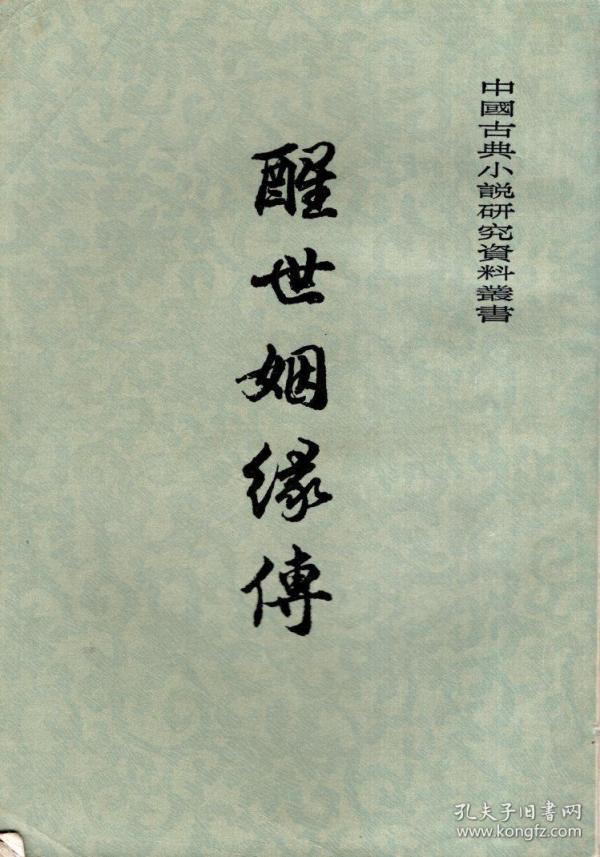 中國古典小說研究資料叢書
醒世姻緣傳
孔夫子旧書网
www.kongfz.com